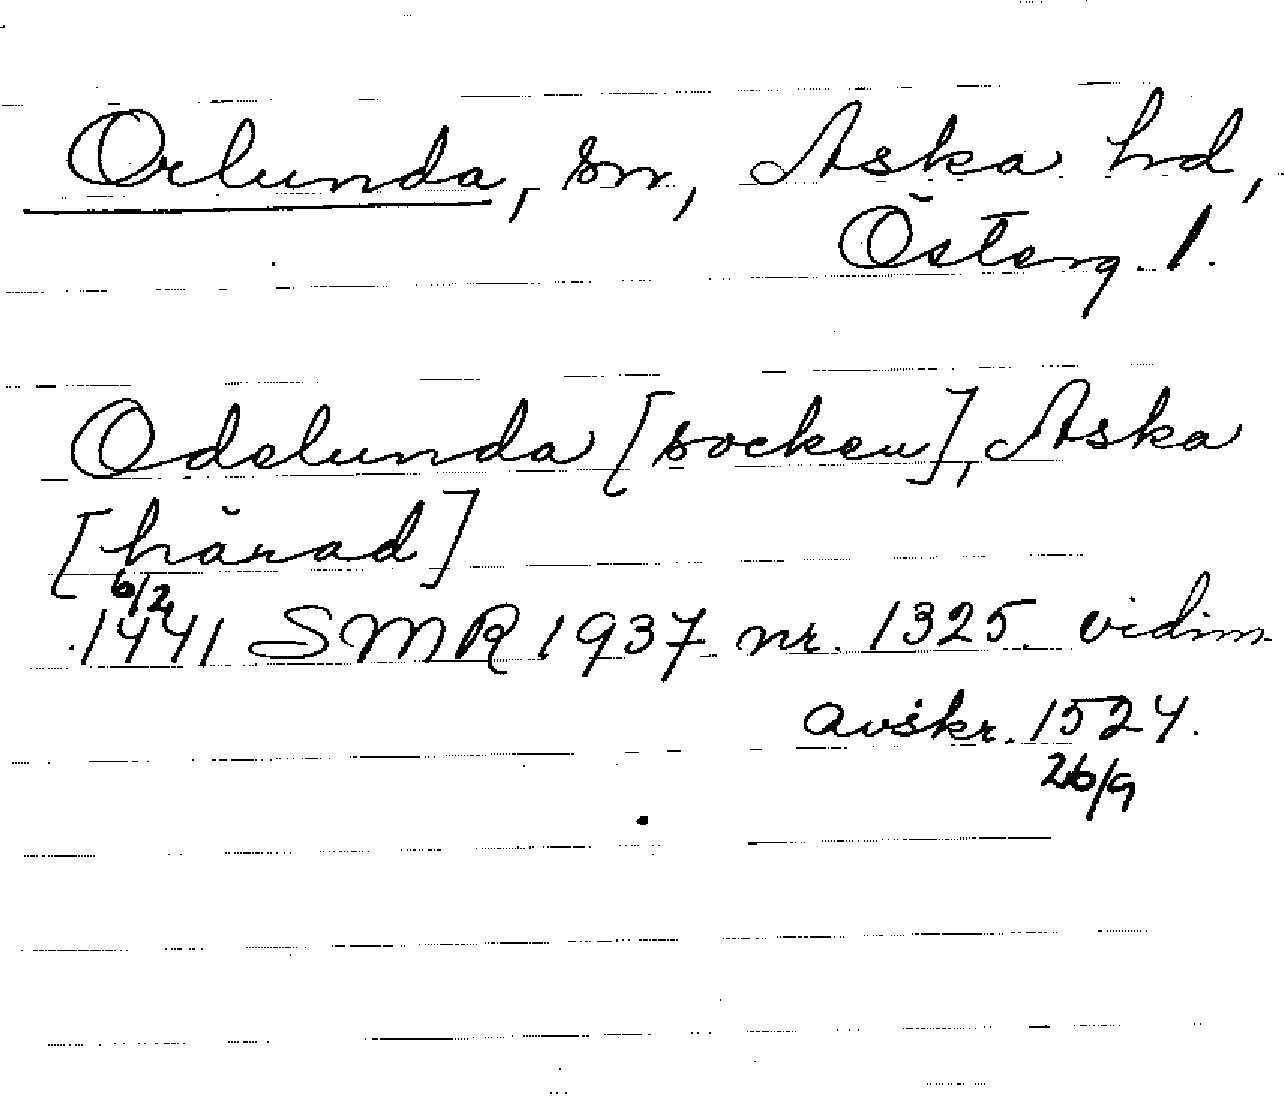 Orlunda, sn, Aska hd,
Österg. l.
Odelunda [socken], Aska
[härad]
6/2
1441 SMR 1937 nr. 1325. vidim.
avskr. 1524.
26/9